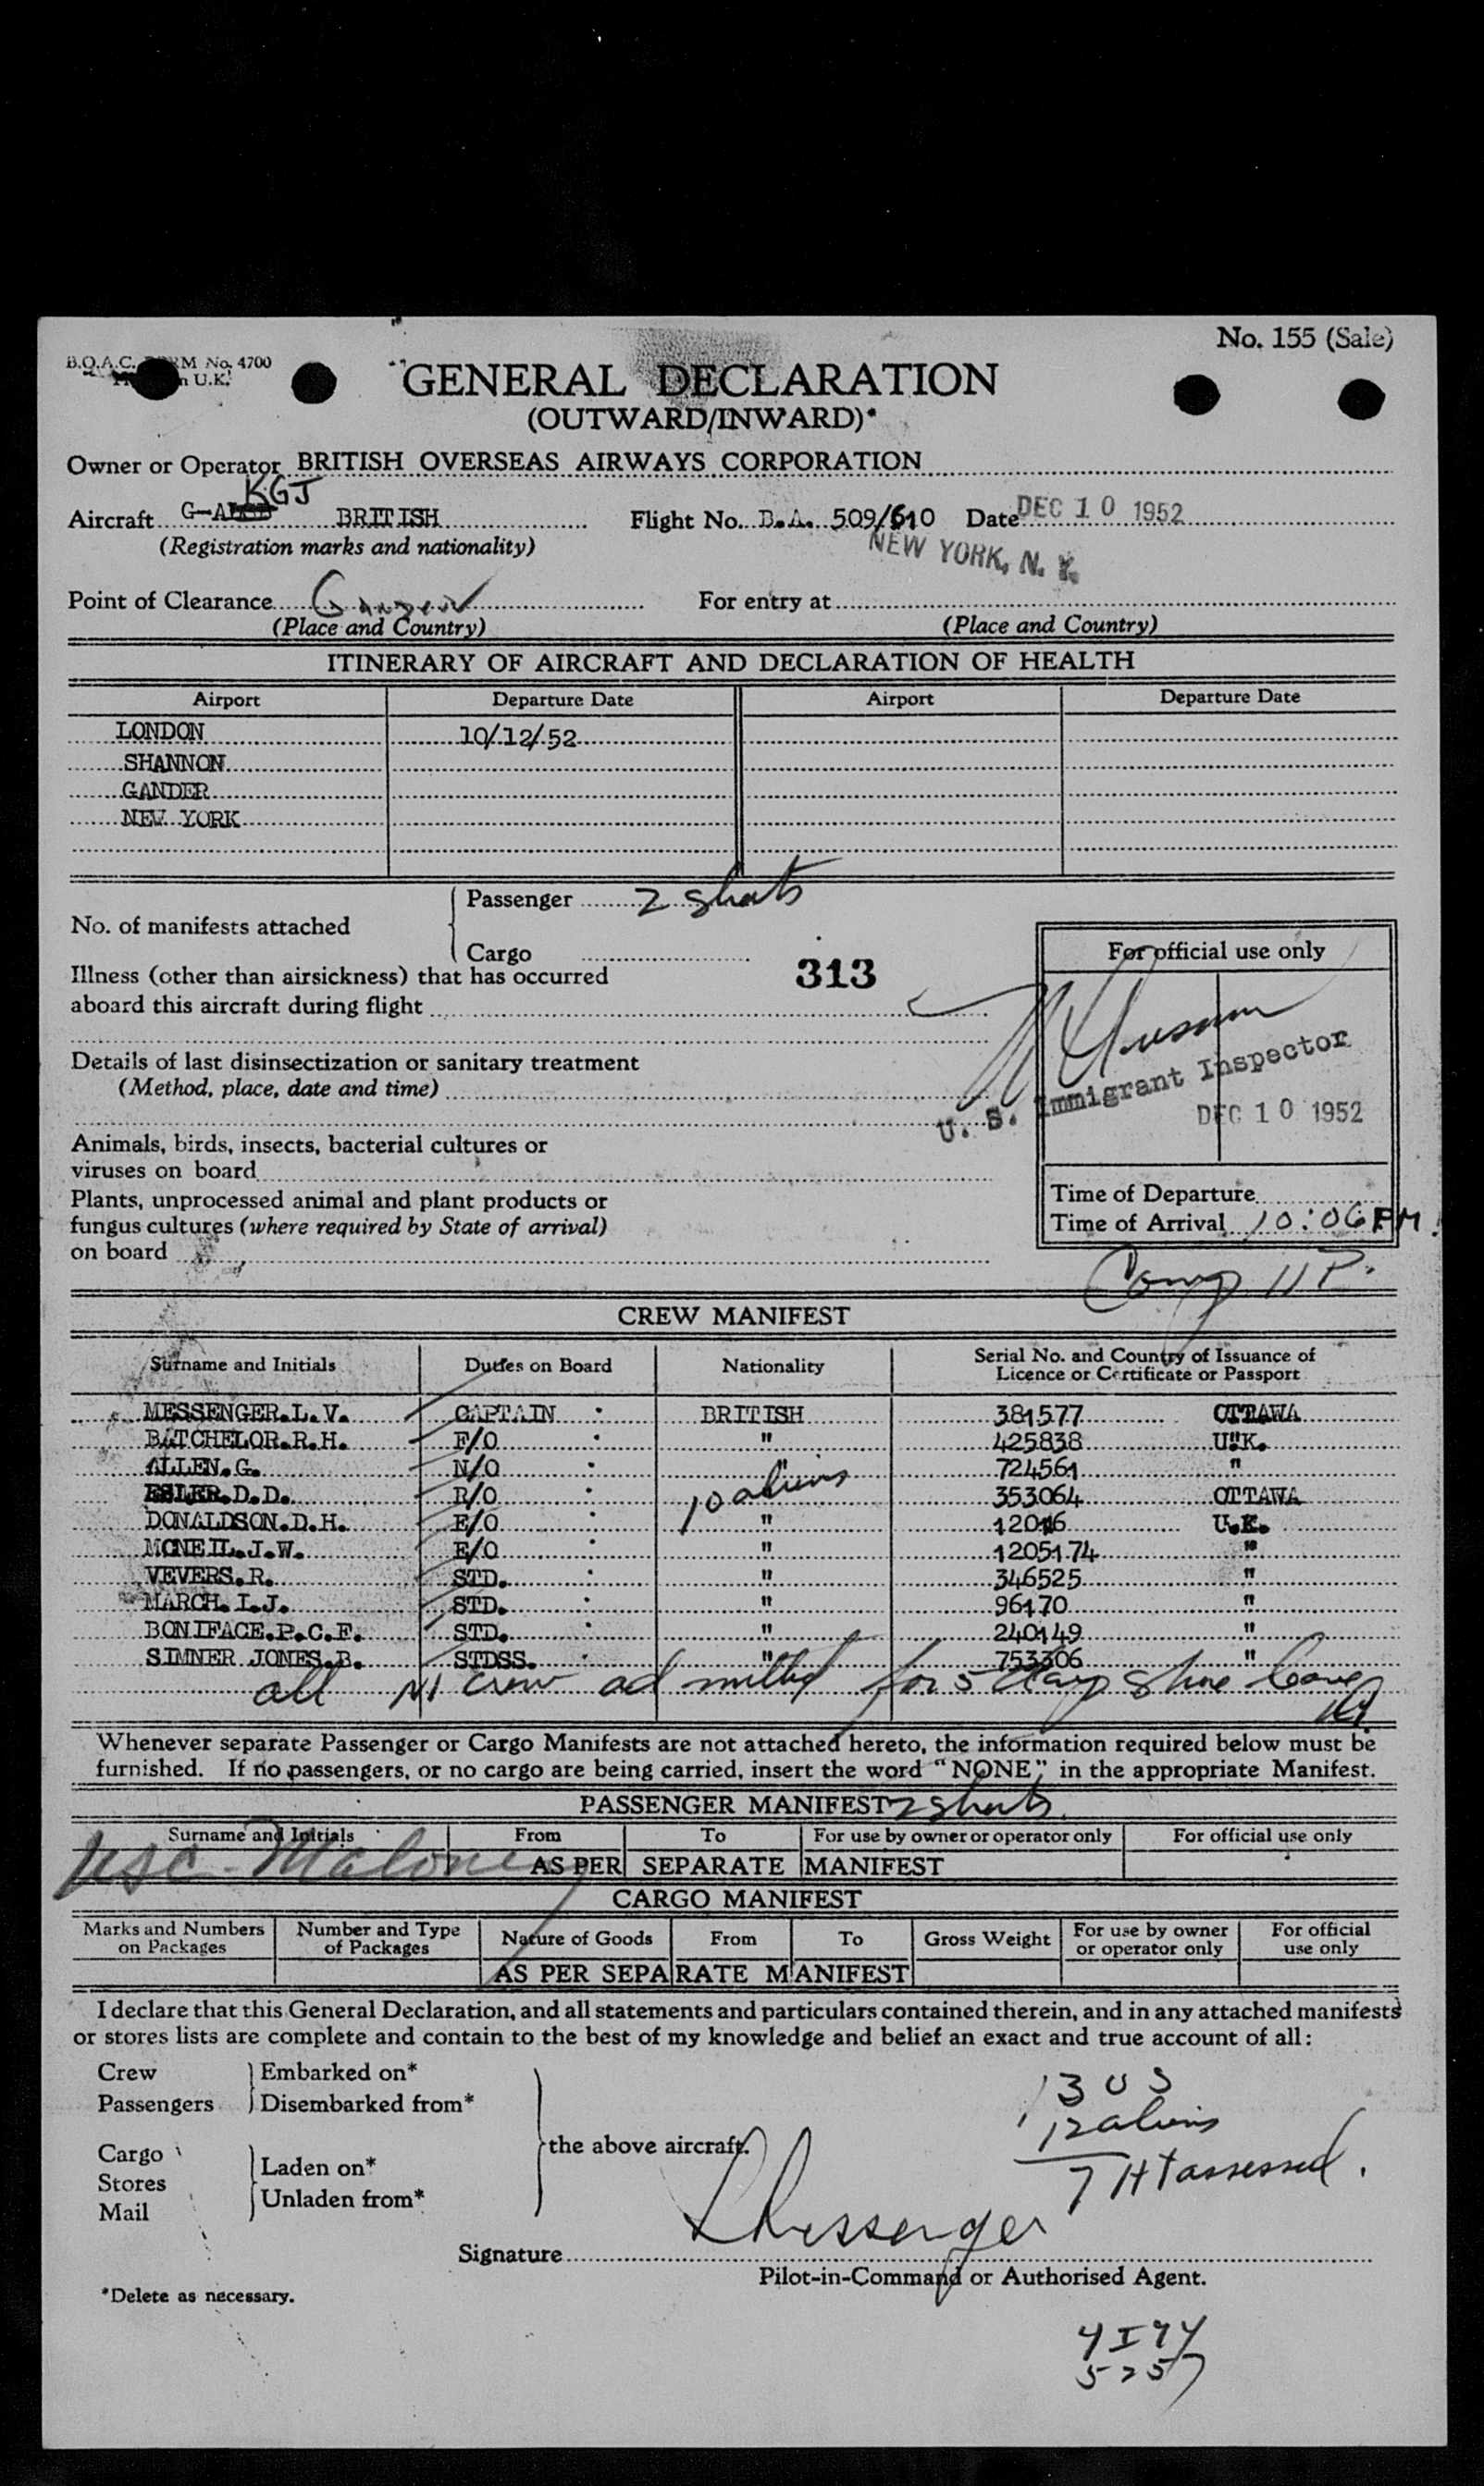 No. 155 (Sale)
B.O.A.C. FORM No. 4700
in U.K.
GENERAL DECLARATION
(OUTWARD/INWARD)*
Owner or Operator BRITISH OVERSEAS AIRWAYS CORPORATION
KGJ
Aircraft G-A BRITISH Flight No. B.A. 509/510 Date DEC 10 1952
(Registration marks and nationality)
NEW YORK, N. Y.
Point of Clearance Gander For entry at
(Place and Country) (Place and Country)
ITINERARY OF AIRCRAFT AND DECLARATION OF HEALTH
Airport Departure Date Airport Departure Date
LONDON 10/12/52
SHANNON
GANDER
NEW YORK
Passenger 2 sheets
No. of manifests attached
Cargo
313
For official use only
Illness (other than airsickness) that has occurred
aboard this aircraft during flight
Details of last disinsectization or sanitary treatment
(Method, place, date and time)
U. S. Immigrant Inspector
DEC 10 1952
Animals, birds, insects, bacterial cultures or
viruses on board
Plants, unprocessed animal and plant products or
fungus cultures (where required by State of arrival)
on board
Time of Departure
Time of Arrival 10:06 PM.
Comp 11 P.
CREW MANIFEST
Surname and Initials Duties on Board Nationality Serial No. and Country of Issuance of
Licence or Certificate or Passport
MESSENGER.L.V. CAPTAIN BRITISH 381577 OTTAWA
BATCHELOR.R.H. F/O " 425838 U.K.
ALLEN.G. N/O " 724561 "
ESLER.D.D. R/O 353064 OTTAWA
10 aliens
DONALDSON.D.H. E/O " 12016 U.K.
MCNEIL.J.W. E/O " 1205174 "
VEVERS.R. STD. " 346525 "
MARCH.L.J. STD. " 96170 "
BONIFACE.P.C.F. STD. " 240149 "
SIMNER JONES.B. STDSS. " 753306 "
all crew admitted for 5 day shore leave
Whenever separate Passenger or Cargo Manifests are not attached hereto, the information required below must be
furnished. If no passengers, or no cargo are being carried, insert the word "NONE" in the appropriate Manifest.
PASSENGER MANIFEST 2 sheets.
Surname and Initials From To For use by owner or operator only For official use only
USC - Maloney AS PER SEPARATE MANIFEST
CARGO MANIFEST
Marks and Numbers on Packages Number and Type of Packages Nature of Goods From To Gross Weight For use by owner or operator only For official use only
AS PER SEPARATE MANIFEST
I declare that this General Declaration, and all statements and particulars contained therein, and in any attached manifests
or stores lists are complete and contain to the best of my knowledge and belief an exact and true account of all:
Crew Embarked on*
Passengers Disembarked from*
the above aircraft.
Cargo
Stores Laden on*
Mail Unladen from*
13 US
12 aliens
7 HT assessed.
Signature LMessenger
Pilot-in-Command or Authorised Agent.
*Delete as necessary.
5257